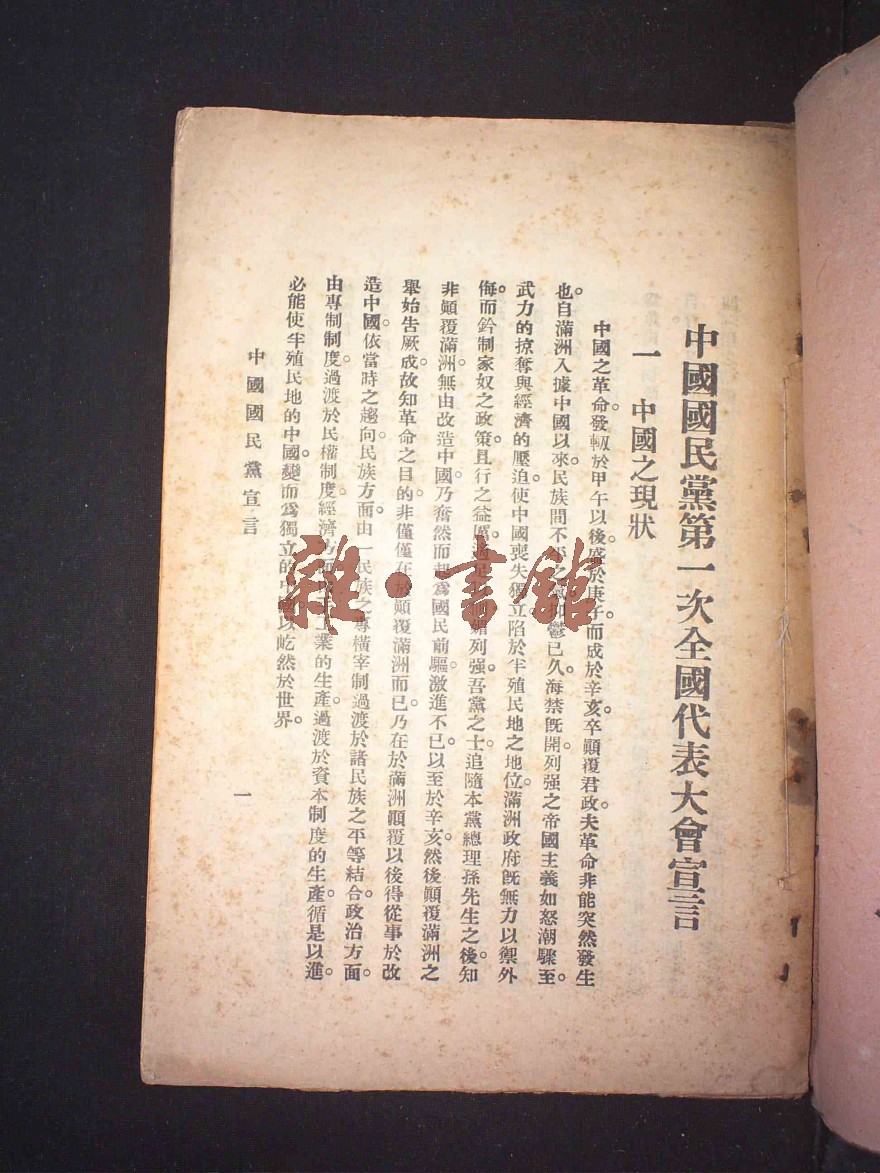 中國國民黨第一次全國代表大會宣言
一 中國之現狀
中國之革命。發軔於甲午以後。盛於庚子。而成於辛亥。卒顛覆君政。夫革命非能突然發生
也。自滿洲入據中國以來。民族間不平之氣。抑鬱已久。海禁既開。列强之帝國主義如怒潮驟至。
武力的掠奪與經濟的壓迫。使中國喪失獨立。陷於半殖民地之地位。滿洲政府既無力以禦外
侮。而鈐制家奴之政策。且行之益厲。適足以側媚列强。吾黨之士。追隨本黨總理孫先生之後。知
非顛覆滿洲。無由改造中國。乃奮然而起。爲國民前驅。激進不已。以至於辛亥。然後顛覆滿洲之
舉。始告厥成。故知革命之目的。非僅僅在於顛覆滿洲而已。乃在於滿洲顛覆以後。得從事於改
造中國。依當時之趨向。民族方面。由一民族之專橫宰制過渡於諸民族之平等結合。政治方面。
由專制制度過渡於民權制度。經濟方面。由手工業的生產。過渡於資本制度的生產。循是以進。
必能使半殖民地的中國。變而爲獨立的中國。以屹然於世界。
中國國民黨宣言
一
雜·書館